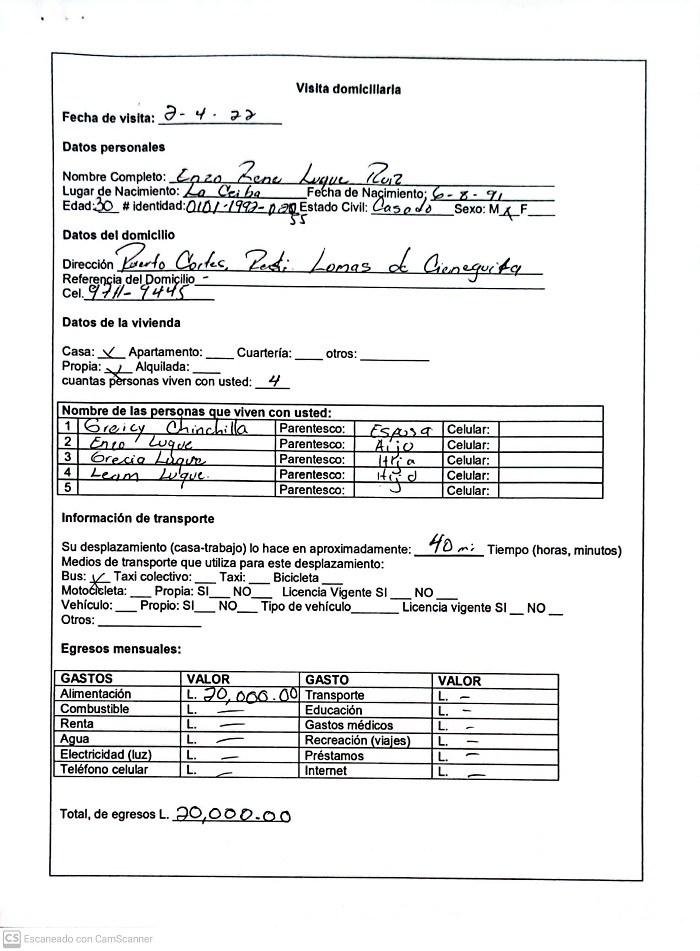 Visita domiciliaria
Fecha de visita: 2-4-22
Datos personales
Nombre Completo: Enzo Rene Luque Ruiz
Lugar de Nacimiento: La Ceiba Fecha de Nacimiento: 6-8-91
Edad: 30 # identidad: 0101-1992- Estado Civil: Casado Sexo: M X F
55
Datos del domicilio
Dirección Puerto Cortes, Resi. Lomas de Cieneguita
Referencia del Domicilio -
Cel. 9711-9445
Datos de la vivienda
Casa: X Apartamento: ____ Cuartería: ____ otros: ____
Propia: X Alquilada: ____
cuantas personas viven con usted: 4
Nombre de las personas que viven con usted:
1 Greicy Chinchilla Parentesco: Esposa Celular:
2 Enzo Luque Parentesco: Hijo Celular:
3 Grecia Luque Parentesco: Hija Celular:
4 Leam Luque. Parentesco: Celular:
5 Parentesco: Celular:
Información de transporte
Su desplazamiento (casa-trabajo) lo hace en aproximadamente: 40 mi Tiempo (horas, minutos)
Medios de transporte que utiliza para este desplazamiento:
Bus: X Taxi colectivo: ___ Taxi: ___ Bicicleta ___
Motocicleta: ___ Propia: SI___ NO___ Licencia Vigente SI ___ NO ___
Vehículo: ___ Propio: SI___ NO___ Tipo de vehículo_______ Licencia vigente SI __ NO __
Otros: ____
Egresos mensuales:
GASTOS VALOR GASTO VALOR
Alimentación L. 20,000.00 Transporte L. -
Combustible L. - Educación L. -
Renta L. - Gastos médicos L. -
Agua L. - Recreación (viajes) L. -
Electricidad (luz) L. - Préstamos L. -
Teléfono celular L. - Internet L. -
Total, de egresos L. 20,000.00
CS Escaneado con CamScanner